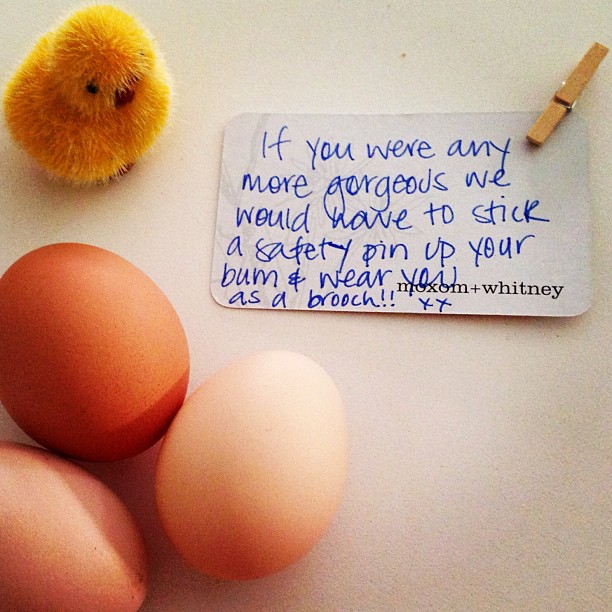 If you were any
more gorgeous we
would have to stick
a safety pin up your
bum & wear you
moxom+whitney
as a brooch!! xx